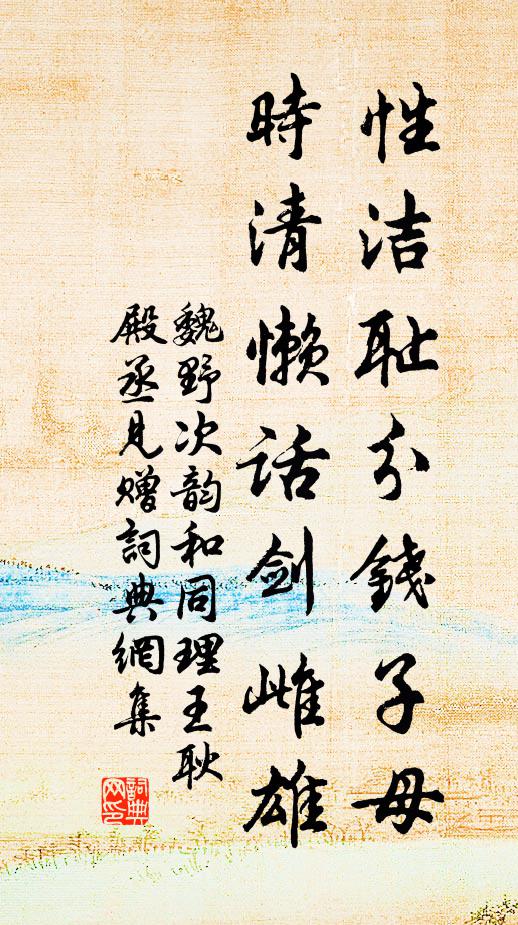 性洁耻分錢子母
時清懒话剑雌雄
魏野次韵和同理王耿
殿丞見赠詞典網集
詞典网印